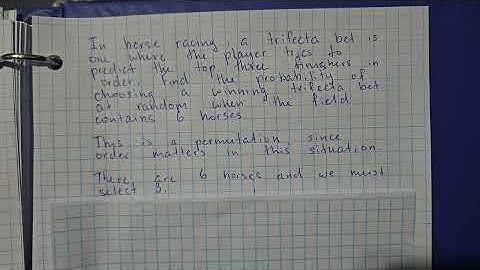 In horse racing a trifecta bet is
one where the player tries to
predict the top three finishers in
order find the probability of
choosing a winning trifecta bet
at random when the field
contains 6 horses
This is a permutation since
order matters in this situation.
There are 6 horses and we must
select 3.